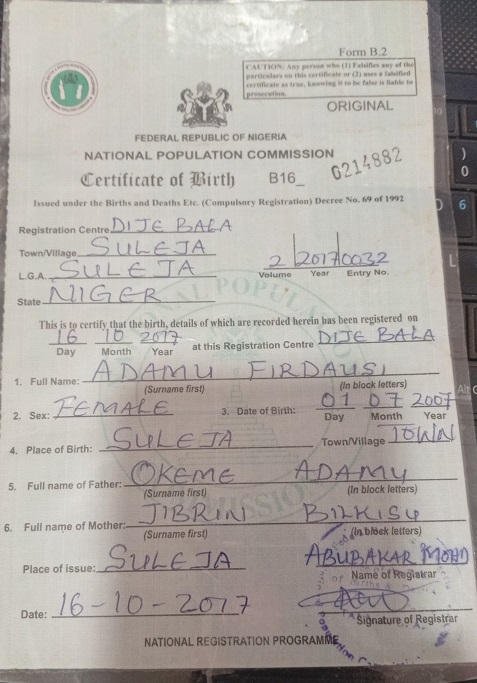 Form B.2
CAUTION: Any person who (1) Falsifies any of the
particulars on this certificate or (2) uses a falsified
certificate as true, knowing it to be false is liable to
prosecution.
ORIGINAL
FEDERAL REPUBLIC OF NIGERIA
NATIONAL POPULATION COMMISSION
Certificate of Birth B16_ 0214882
Issued under the Births and Deaths Etc. (Compulsory Registration) Decree No. 69 of 1992
Registration Centre DIJE BALA
Town/Village SULEJA
L.G.A. SULEJA 2 2017 0032
Volume Year Entry No.
State NIGER
This is to certify that the birth, details of which are recorded herein has been registered on
16 10 2017 at this Registration Centre DIJE BALA
Day Month Year
1. Full Name: ADAMU FIRDAUSI
(Surname first) (In block letters)
2. Sex: FEMALE 3. Date of Birth: 01 07 2007
Day Month Year
4. Place of Birth: SULEJA Town/Village TOWN
5. Full name of Father: OKEME ADAMU
(Surname first) (In block letters)
6. Full name of Mother: JIBRIN BILKISU
(Surname first) (In block letters)
Place of issue: SULEJA ABUBAKAR MOHD
Name of Registrar
Date: 16-10-2017
Signature of Registrar
NATIONAL REGISTRATION PROGRAMME